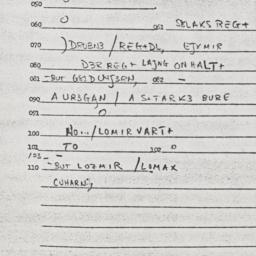 050
060 O 061 SELAKS REG+
070 ) DRUEN3 / REG+DL, EJXMIR
080 D3R REG+ LAJNG ON HALT+
081 -BUT 082 -
090 AURSGAN / A S+TARK3 BURE
091 O
100 NO... / LOMIR VART+
102 TO O
103 - -
110 -BUT LOZMIR / LOMAX